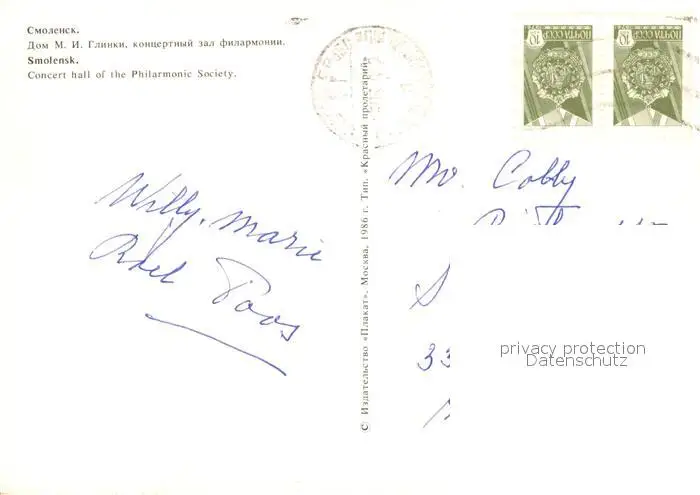 Смоленск.
Дом М. И. Глинки, концертный зал филармонии.
Smolensk.
Concert hall of the Philarmonic Society.
10 ПОЧТА СССР
10 ПОЧТА СССР
Willy, Marie
Roel Poos
© Издательство «Плакат». Москва, 1986 г. Тип. «Красный пролетарий»
Cobby
S
33
privacy protection
Datenschutz